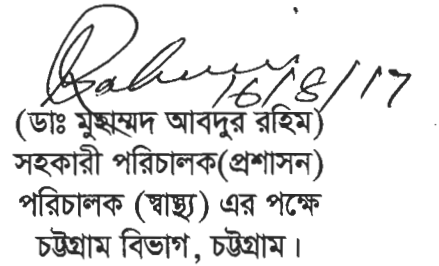 16/8/17
(ডাঃ মুহাম্মদ আবদুর রহিম)
সহকারী পরিচালক(প্রশাসন)
পরিচালক (স্বাস্থ্য) এর পক্ষে
চট্টগ্রাম বিভাগ, চট্টগ্রাম।